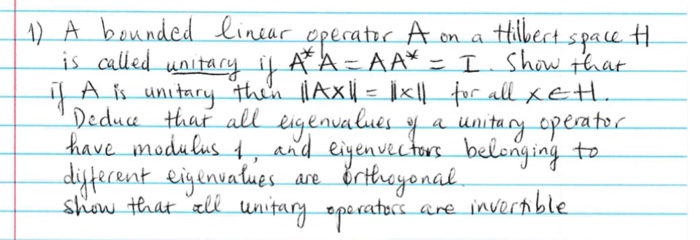 1) A bounded linear operator A on a Hilbert space H
is called unitary if A*A = AA* = I. Show that
if A is unitary then ||Ax|| = ||x|| for all x ∈ H.
Deduce that all eigenvalues of a unitary operator
have modulus 1, and eigenvectors belonging to
different eigenvalues are orthogonal.
Show that all unitary operators are invertible